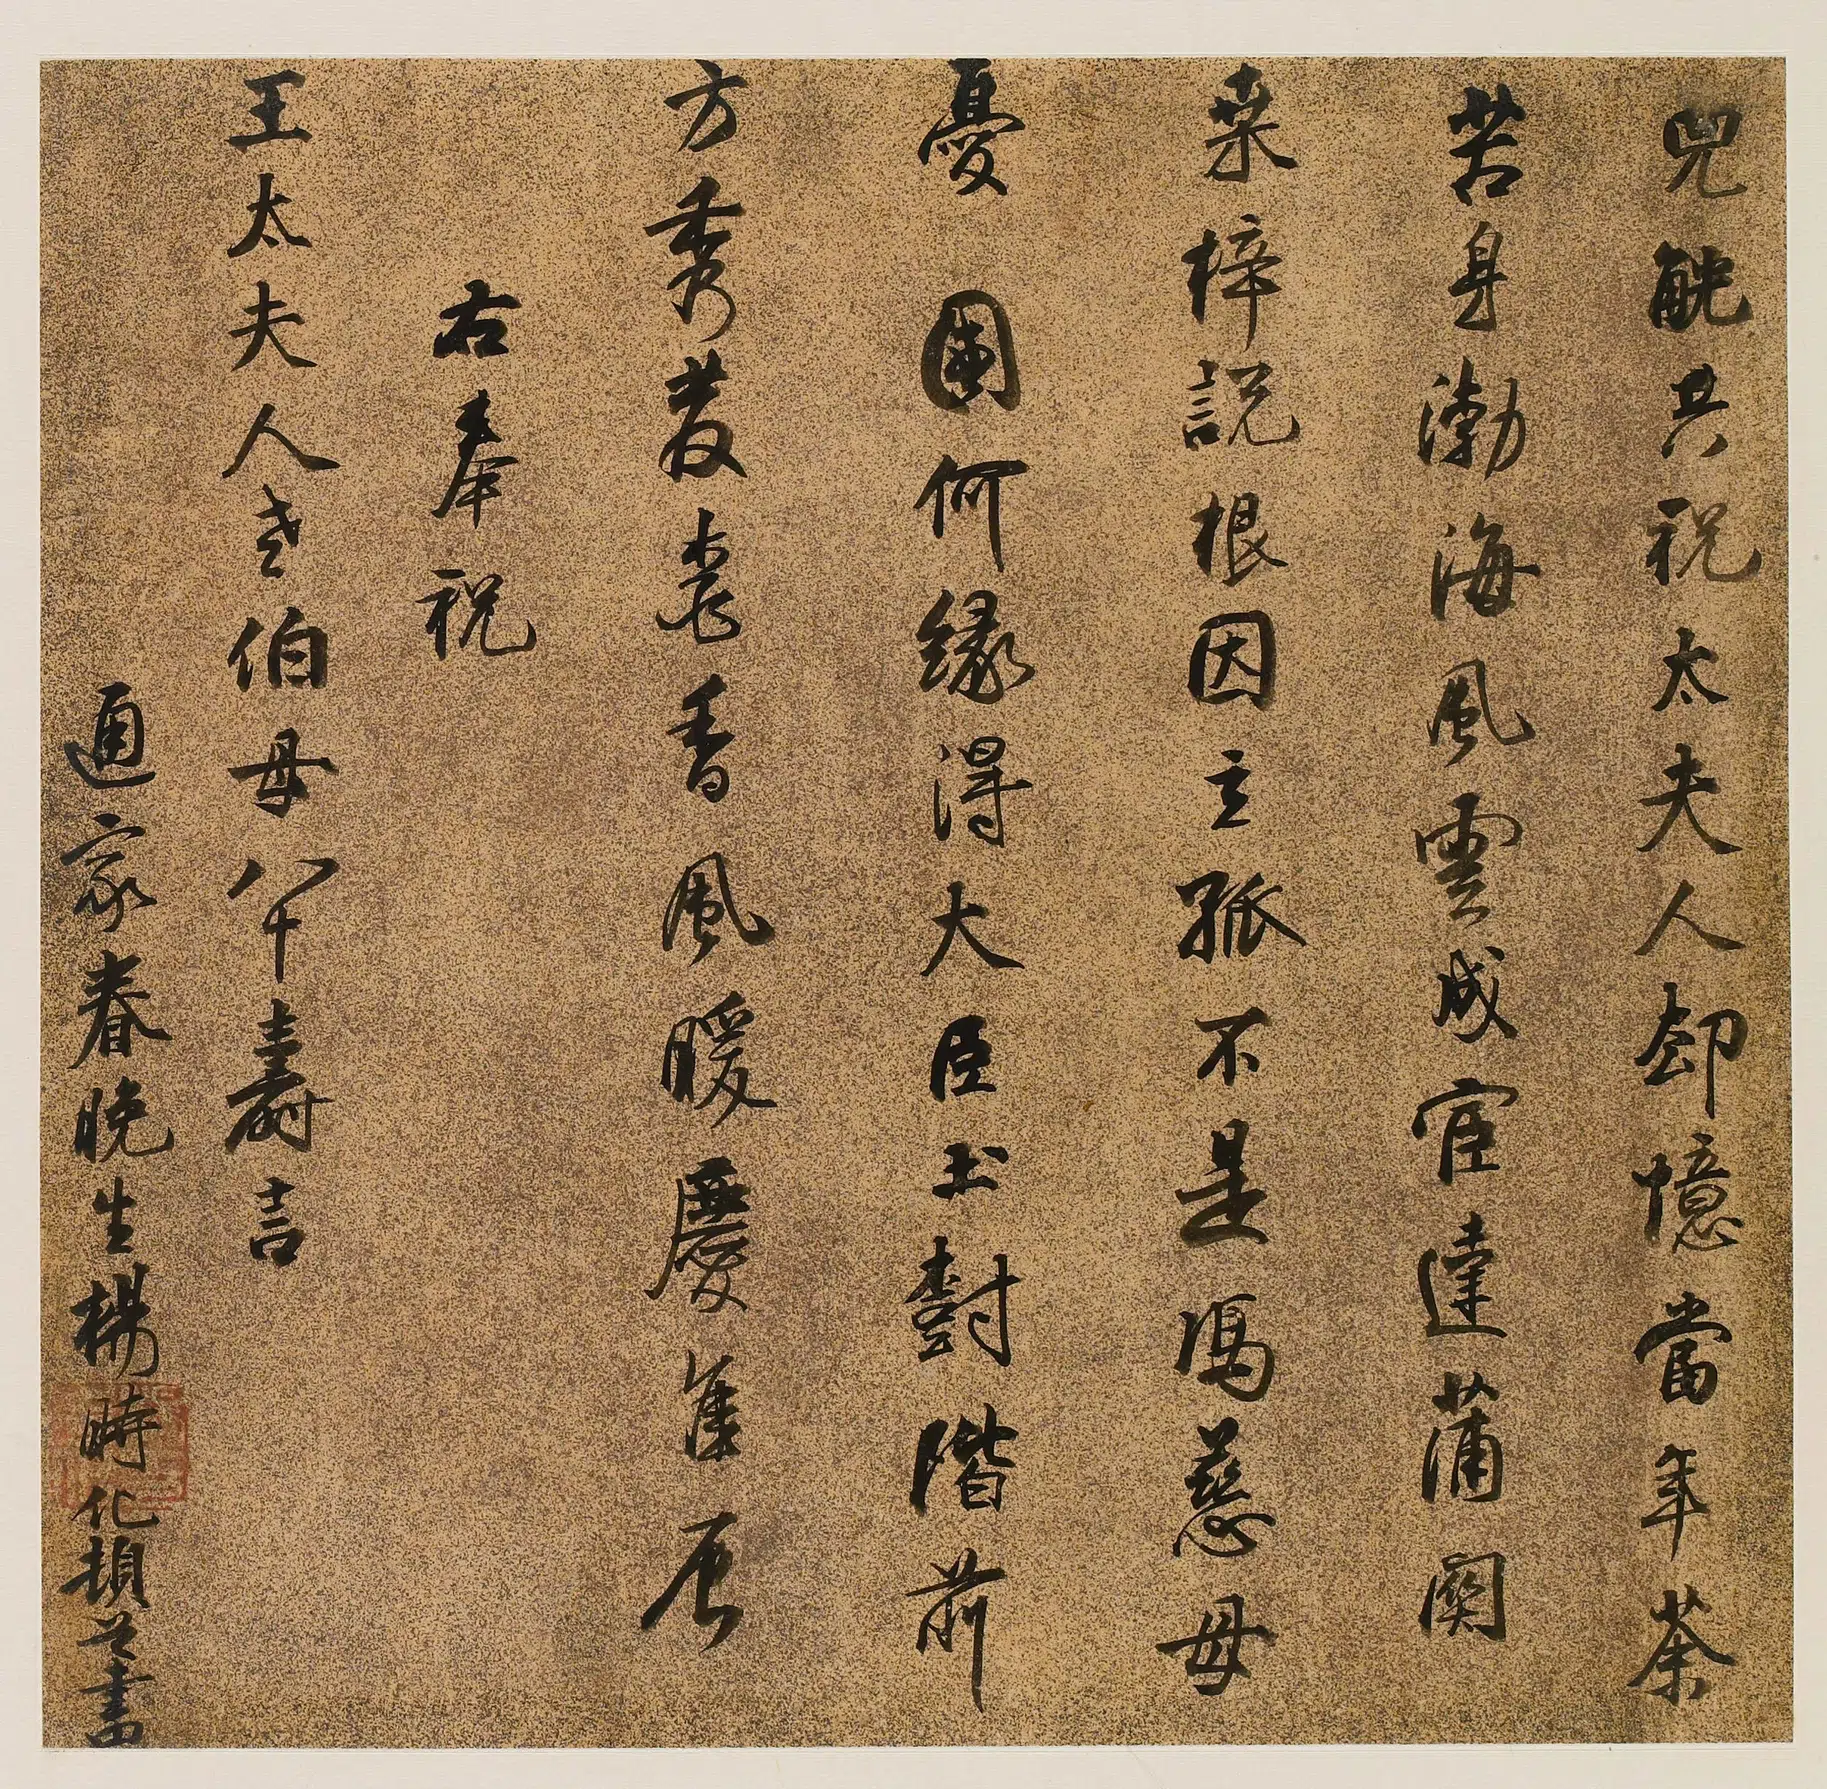 兕觥共祝太夫人却憶當年荼
苦身渤海風雲成宦達蒲關
桑梓說根因立孤不是馮慈母
憂國何緣得大臣土封階前
方秀發壽香風暖慶隹辰
右奉祝
王太夫人老伯母八十壽言
通家眷晚生楊時化頓首書